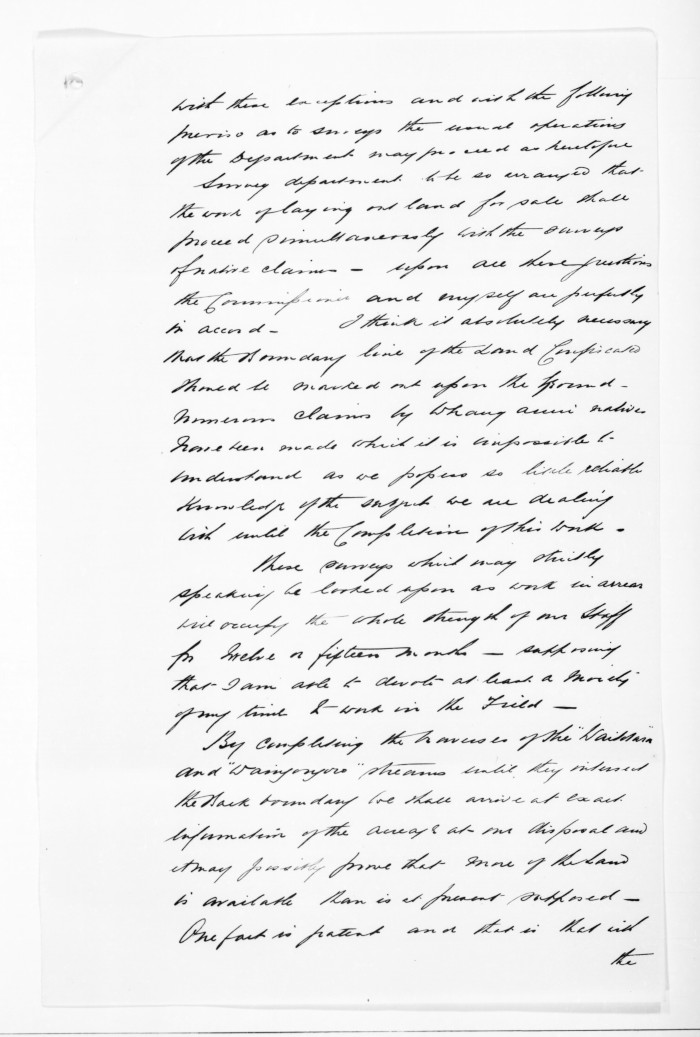 with these exceptions and with the following
proviso as to surveys the usual operations
of the Department may proceed as heretofore
Survey department to be so arranged that
the work of laying out land for sale shall
proceed simultaneously with the surveys
of native claims — upon all these questions
the Commissioner and myself are perfectly
in accord — I think it absolutely necessary
that the Boundary line of the Land Confiscated
should be marked out upon the ground —
numerous claims by Whanganui natives
have been made which it is impossible to
understand as we possess so little reliable
knowledge of the subject we are dealing
with until the Completion of this work —
These surveys which may strictly
speaking be looked upon as work in arrear
will occupy the whole strength of our Staff
for Twelve or fifteen months — supposing
that I am able to devote at least a Moiety
of my time to work in the Field —
By completing the traverses of the "Waitotara"
and "Waingongoro" streams until they intersect
the Back boundary we shall arrive at exact
information of the acreage at our disposal and
it may possibly prove that more of the Land
is available than is at present supposed —
One fact is patent and that is that with
the